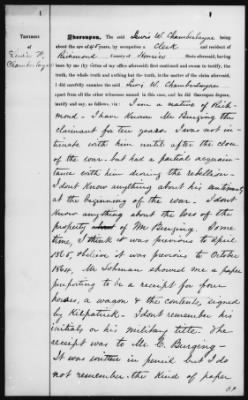 TESTIMONY
of
Lewis W.
Chamberlayne
Whereupon, The said Lewis W. Chamberlayne
being about the age of 45 years, by occupation a Clerk and resident of
Richmond County of Henrico State aforesaid, having
been by me (by virtue of my office aforesaid) first cautioned and sworn to testify the
truth, the whole truth and nothing but the truth, in the matter of the claim aforesaid,
I did carefully examine the said Lewis W. Chamberlayne
apart from the other witnesses named in this case, and he did thereupon depose,
testify and say, as follows, viz: I am a native of Rich-
mond. I have known Mr Burging this
claimant for ten years. I was not in-
timate with him until after the close
of the war. but had a partial acquain-
tance with him during the rebellion.
I dont know anything about his
at the beginning of the war. I dont
know anything about the loss of the
property of Mr Burging. Some
time, I think it was previous to April
1865, I believe it was previous to October
1864, Mr Lohman showed me a paper
purporting to be a receipt for four
horses, a wagon & the contents, signed
by Kilpatrick. I dont remember his
initials or his military title. The
receipt was to Mr E. Burging-
It was written in pencil but I do
not remember the kind of paper